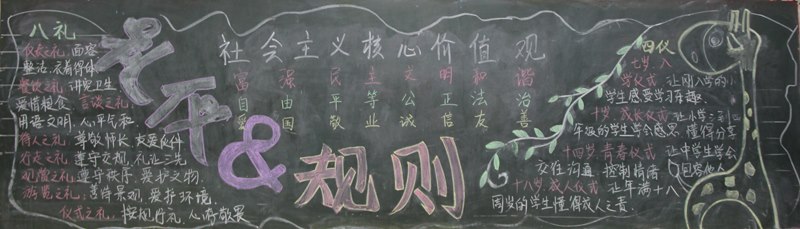 八礼
仪表之礼：面容
整洁、衣着得体
餐饮之礼：讲究卫生
爱惜粮食 言谈之礼：
用语文明、心平气和
待人之礼：尊敬师长 友爱伙伴
行走之礼：遵守交规、礼让三先
观赏之礼：遵守秩序、爱护文物
游览之礼：善待景观、爱护环境
仪式之礼：按规行礼、心存敬畏
平
&
规则
社会主义核心价值观
富 强 民 主 文 明 和 谐
自 由 平 等 公 正 法 治
爱 国 敬 业 诚 信 友 善
四仪
七岁，入
学仪式 让刚入学的
学生感受学习乐趣.
十岁，成长仪式 让小学三
年级的学生学会感恩、懂得分享
十四岁，青春仪式 让中学生学会
交往沟通 控制情绪
十八岁，成人仪式 让年满十八
周岁的学生懂得成人之责.